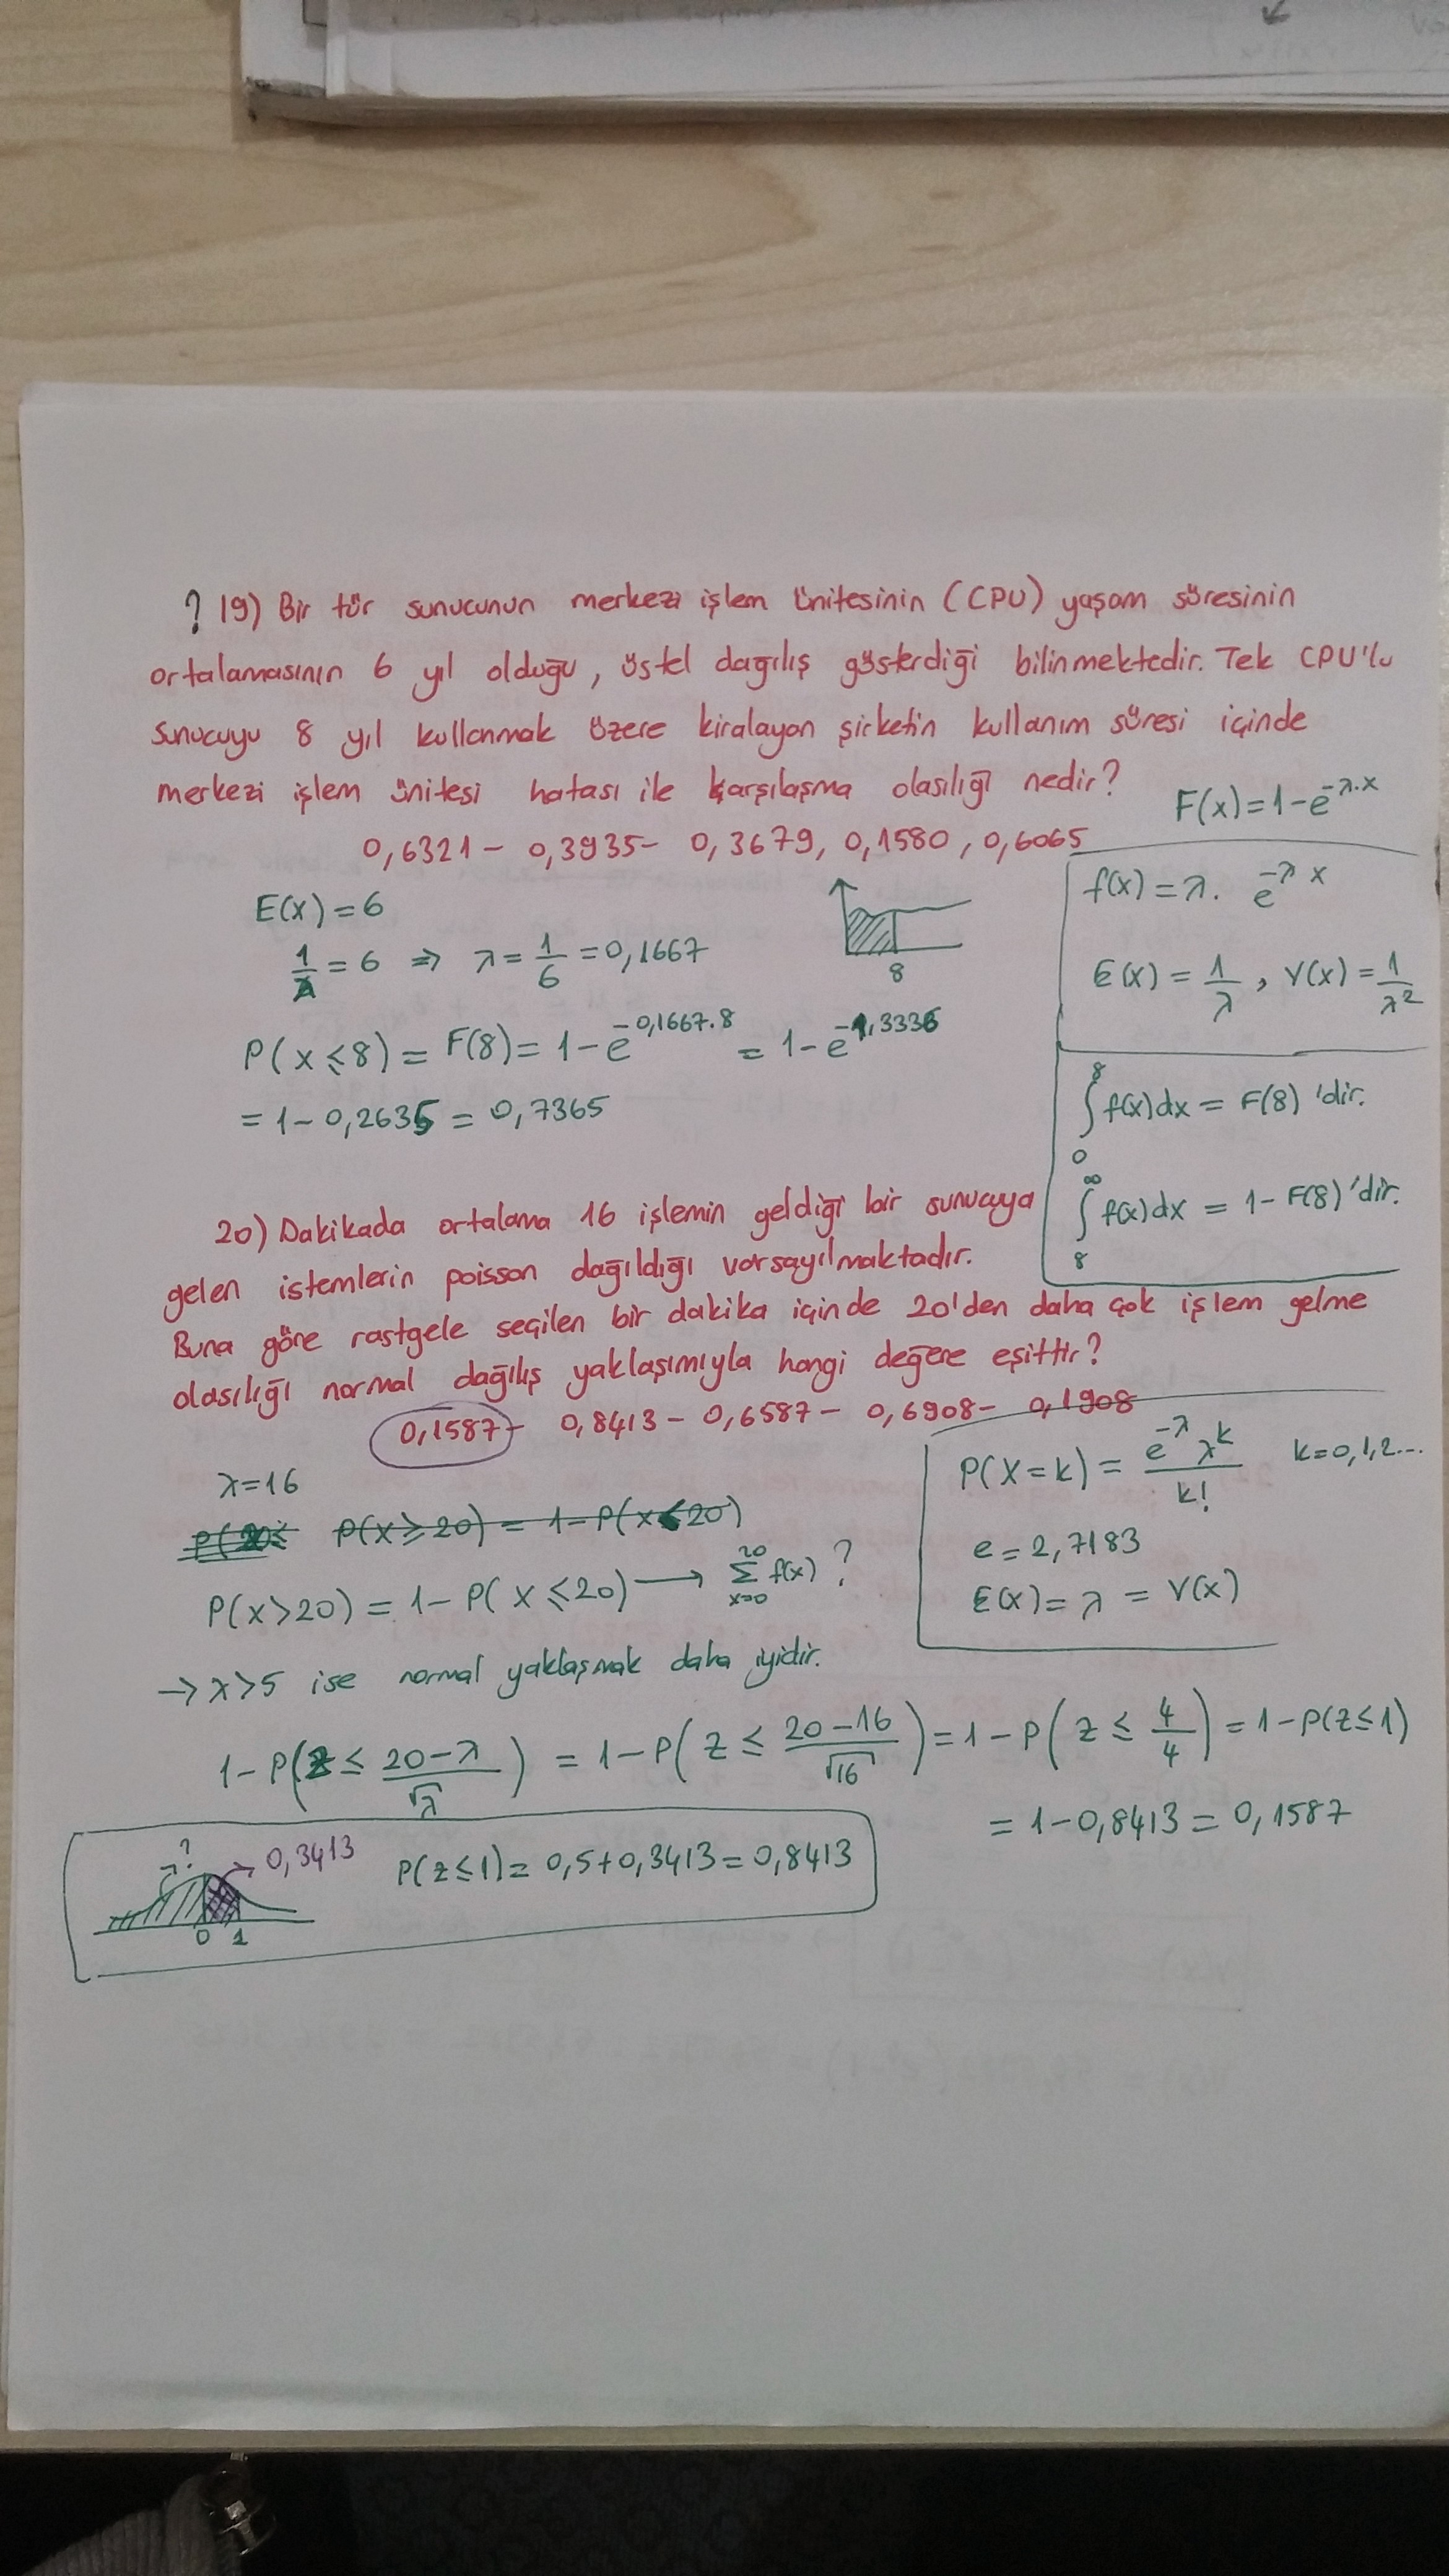 ? 19) Bir tür sunucunun merkezi işlem ünitesinin (CPU) yaşam süresinin
ortalamasının 6 yıl olduğu, üstel dağılış gösterdiği bilinmektedir. Tek CPU'lu
sunucuyu 8 yıl kullanmak üzere kiralayan şirketin kullanım süresi içinde
merkezi işlem ünitesi hatası ile karşılaşma olasılığı nedir?
0,6321 - 0,3935 - 0,3679, 0,1580, 0,6065
F(x) = 1 - e^{-λ.x}
f(x) = λ. e^{-λ x}
E(x) = 1/λ, V(x) = 1/λ²
∫_0^8 f(x)dx = F(8)'dir.
∫_8^∞ f(x)dx = 1 - F(8)'dir.
E(x) = 6
1/λ = 6 ⇒ λ = 1/6 = 0,1667
8
P(x ≤ 8) = F(8) = 1 - e^{-0,1667.8} = 1 - e^{-1,3336}
= 1 - 0,2635 = 0,7365
20) Dakikada ortalama 16 işlemin geldiği bir sunucuya
gelen istemlerin poisson dağıldığı varsayılmaktadır.
Buna göre rastgele seçilen bir dakika içinde 20'den daha çok işlem gelme
olasılığı normal dağılış yaklaşımıyla hangi değere eşittir?
0,1587 - 0,8413 - 0,6587 - 0,6908 - 0,1908
P(X=k) = e^{-λ} λ^k / k! k=0,1,2...
e = 2,7183
E(x) = λ = V(x)
λ=16
P(x ≥ 20) = 1 - P(x < 20)
P(x > 20) = 1 - P(x ≤ 20) → Σ_{x=0}^{20} f(x) ?
→ λ > 5 ise normal yaklaşmak daha iyidir.
1 - P(z ≤ (20-λ)/√λ) = 1 - P(z ≤ (20-16)/√16) = 1 - P(z ≤ 4/4) = 1 - P(z ≤ 1)
= 1 - 0,8413 = 0,1587
? 0,3413
0 1
P(z ≤ 1) = 0,5 + 0,3413 = 0,8413